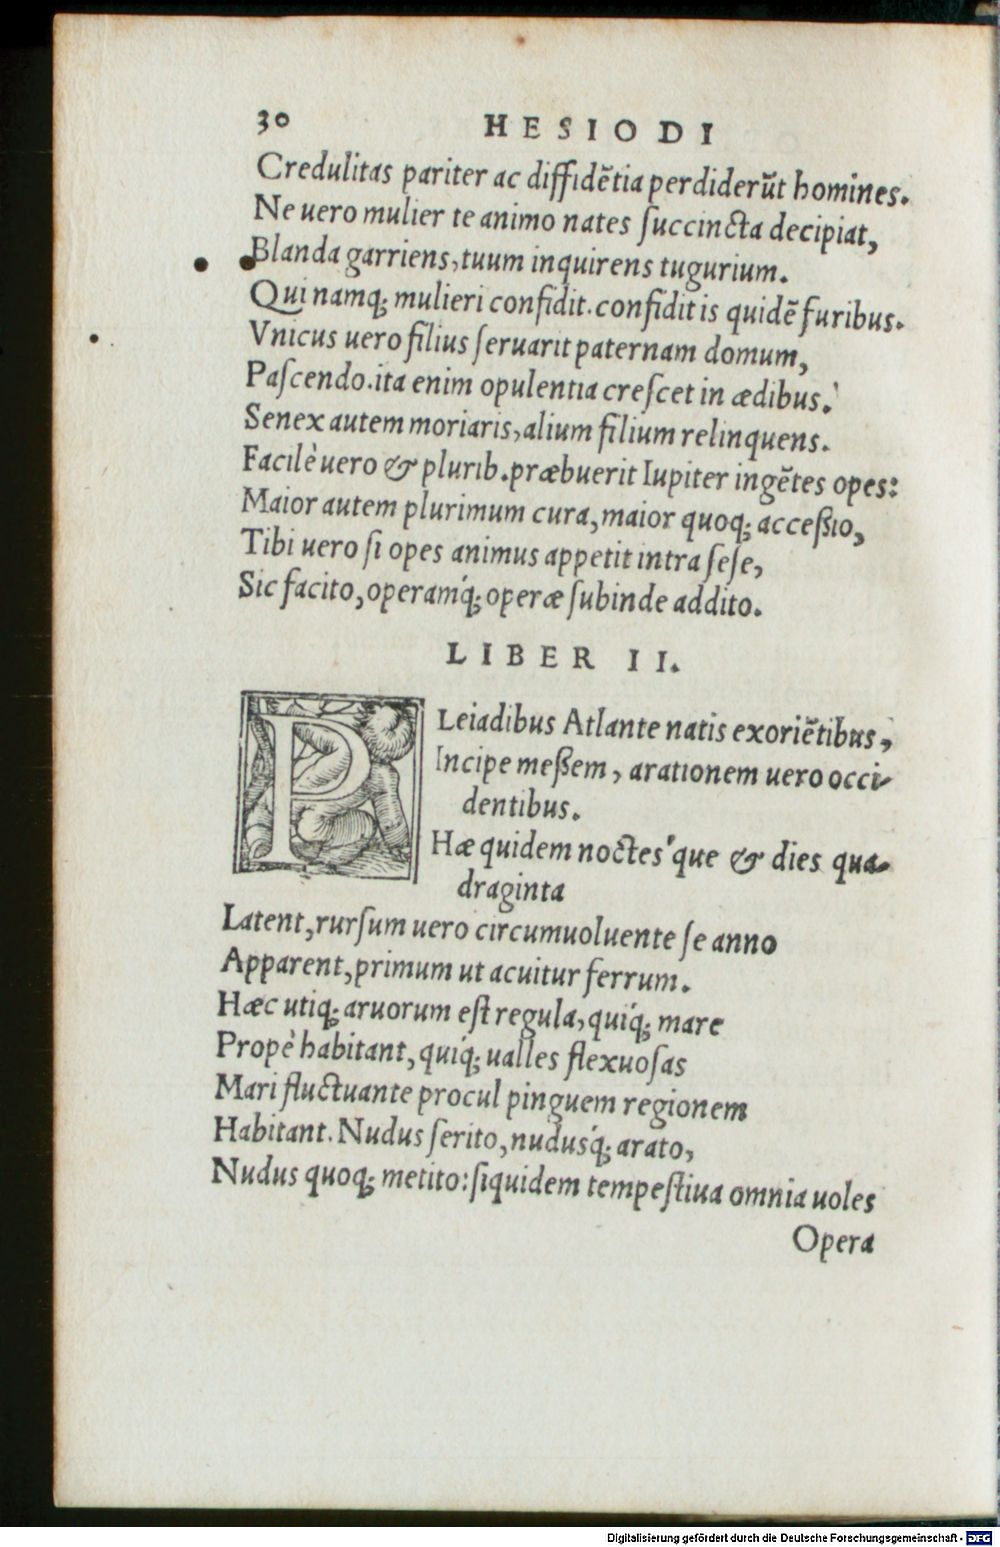 30 HESIODI
Credulitas pariter ac diffidẽtia perdiderũt homines.
Ne uero mulier te animo nates ſuccincta decipiat,
Blanda garriens, tuum inquirens tugurium.
Qui namq; mulieri confidit. confidit is quidẽ furibus.
Vnicus uero filius ſeruarit paternam domum,
Paſcendo. ita enim opulentia creſcet in ædibus.
Senex autem moriaris, alium filium relinquens.
Facilè uero & plurib. præbuerit Iupiter ingẽtes opes:
Maior autem plurimum cura, maior quoq; acceßio,
Tibi uero ſi opes animus appetit intra ſeſe,
Sic facito, operamq́; operæ ſubinde addito.
LIBER II.
PLeiadibus Atlante natis exoriẽtibus,
Incipe meßem, arationem uero occi-
dentibus.
Hæ quidem noctes'que & dies qua-
draginta
Latent, rurſum uero circumuoluente ſe anno
Apparent, primum ut acuitur ferrum.
Hæc utiq; aruorum eſt regula, quiq́; mare
Propè habitant, quiq́; ualles flexuoſas
Mari fluctuante procul pinguem regionem
Habitant. Nudus ſerito, nudusq́; arato,
Nudus quoq; metito: ſiquidem tempeſtiua omnia uoles
Opera
Digitalisierung gefördert durch die Deutsche Forschungsgemeinschaft - DFG